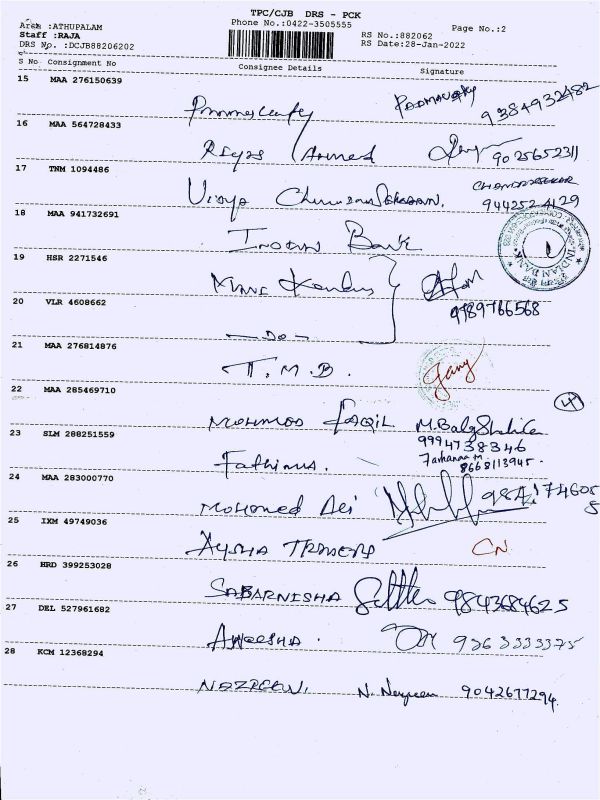 TPC/CJB DRS - PCK
Area :ATHUPALAM
Phone No.:0422-3505555
Page No.:2
Staff :RAJA
RS No.:882062
DRS No. :DCJB88206202
RS Date:28-Jan-2022
S No Consignment No Consignee Details Signature
15 MAA 276150639
9384932482
16 MAA 564728433
Riyas Ahmed 9025652311
17 TNM 1094486
Vidya
18 MAA 941732691
Indian Bank
INDIAN BANK
19 HSR 2271546
9789766568
20 VLR 4608662
- Do -
21 MAA 276814876
T.M.B.
22 MAA 285469710
23 SLM 288251559
9994738346
Fathima. Farhana M
8668113945.
24 MAA 283000770
Mohamed Ali
25 IXM 49749036
Aysha Traders CN
26 HRD 399253028
SABARNISHA 9843684625
27 DEL 527961682
Aneesha. 9363333375
28 KCM 12368294
Nazreen. N. Nazreen 9042677294